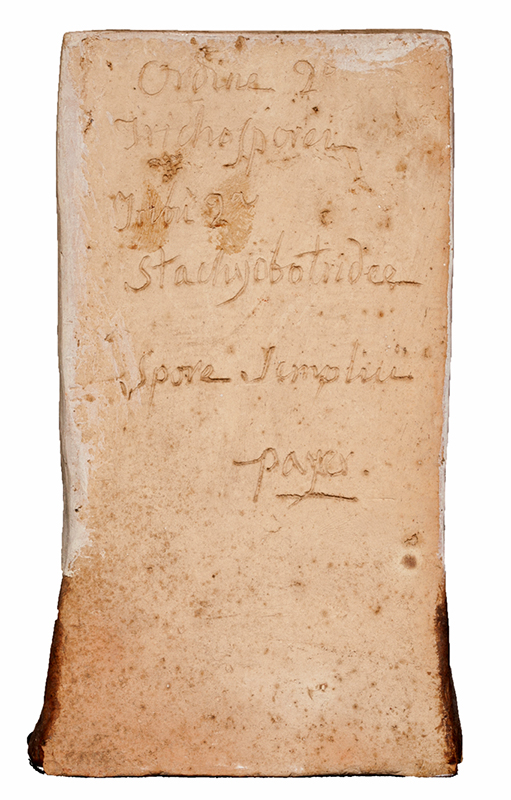 Ordine 2°
Trichosporei
Tribù 2a
Stachÿobotridee
Spore Semplici
payer.